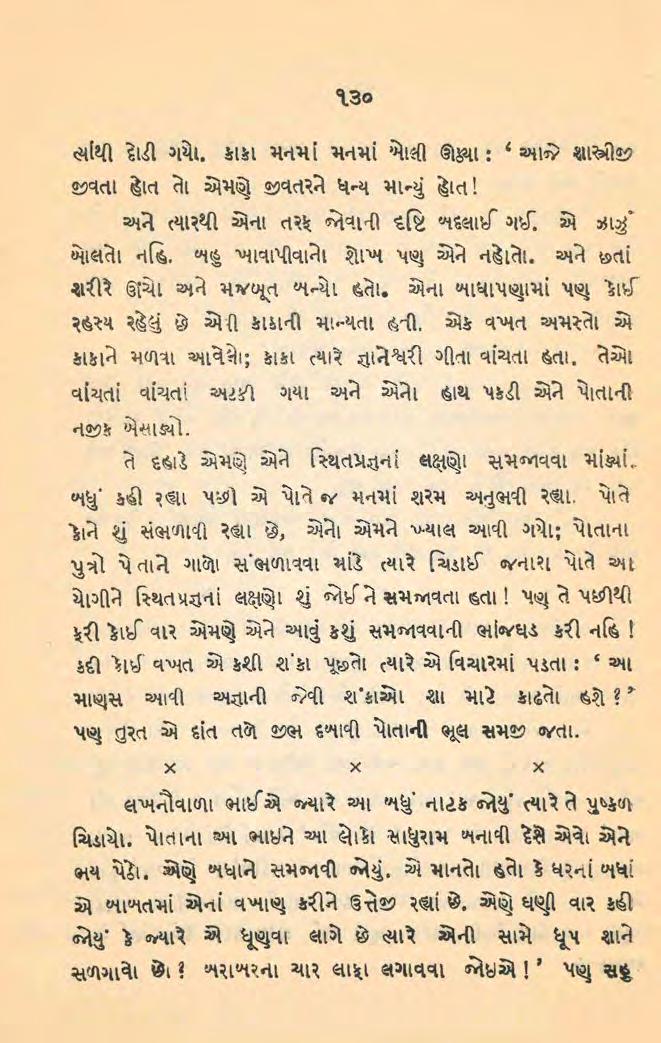 ૧૩૦
ત્યાંથી દોડી ગયો. કાકા મનમાં મનમાં બોલી ઊઠ્યા : ‘ આજે શાસ્ત્રીજી
જીવતા હોત તો એમણે જીવતરને ધન્ય માન્યું હોત!
અને ત્યારથી એના તરફ જોવાની દૃષ્ટિ બદલાઈ ગઈ. એ ઝાઝું
બોલતો નહિ. બહુ ખાવાપીવાનો શોખ પણ એને નહોતો. અને છતાં
શરીરે ઊંચો અને મજબૂત બન્યો હતો. એના બાધાપણામાં પણ કોઈ
રહસ્ય રહેલું છે એવી કાકાની માન્યતા હતી. એક વખત અમસ્તો એ
કાકાને મળવા આવેલો; કાકા ત્યારે જ્ઞાનેશ્વરી ગીતા વાંચતા હતા. તેઓ
વાંચતાં વાંચતાં અટકી ગયા અને એનો હાથ પકડી એને પોતાની
નજીક બેસાડ્યો.
તે દહાડે એમણે એને સ્થિતપ્રજ્ઞનાં લક્ષણો સમજાવવા માંડ્યાં.
બધું કહી રહ્યા પછી એ પોતે જ મનમાં શરમ અનુભવી રહ્યા. પોતે
કોને શું સંભળાવી રહ્યા છે, એનો એમને ખ્યાલ આવી ગયો; પોતાના
પુત્રો પોતાને ગાળો સંભળાવવા માંડે ત્યારે ચિડાઈ જનારા પોતે આ
યોગીને સ્થિતપ્રજ્ઞનાં લક્ષણો શું જોઈને સમજાવતા હતા! પણ તે પછીથી
ફરી કોઈ વાર એમણે એને આવું કશું સમજાવવાની ભાંજઘડ કરી નહિ !
કદી કોઈ વખત એ કશી શંકા પૂછતો ત્યારે એ વિચારમાં પડતા : ‘ આ
માણસ આવી અજ્ઞાની જેવી શંકાઓ શા માટે કાઢતો હશે ? ’
પણ તુરત એ દાંત તળે જીભ દબાવી પોતાની ભૂલ સમજી જતા.
× × ×
લખનૌવાળા ભાઈએ જ્યારે આ બધું નાટક જોયું ત્યારે તે પુષ્કળ
ચિડાયો. પોતાના આ ભાઇને આ લોકો સાધુરામ બનાવી દેશે એવો એને
ભય પેઠો. એણે બધાને સમજાવી જોયું. એ માનતો હતો કે ઘરનાં બધાં
એ બાબતમાં એનાં વખાણ કરીને ઉત્તેજી રહ્યાં છે. એણે ઘણી વાર કહી
જોયું કે જ્યારે એ ધૂણવા લાગે છે ત્યારે એની સામે ધૂપ શાને
સળગાવો છો ? બરાબરના ચાર લાફા લગાવવા જોઇએ ! ’ પણ સહુ